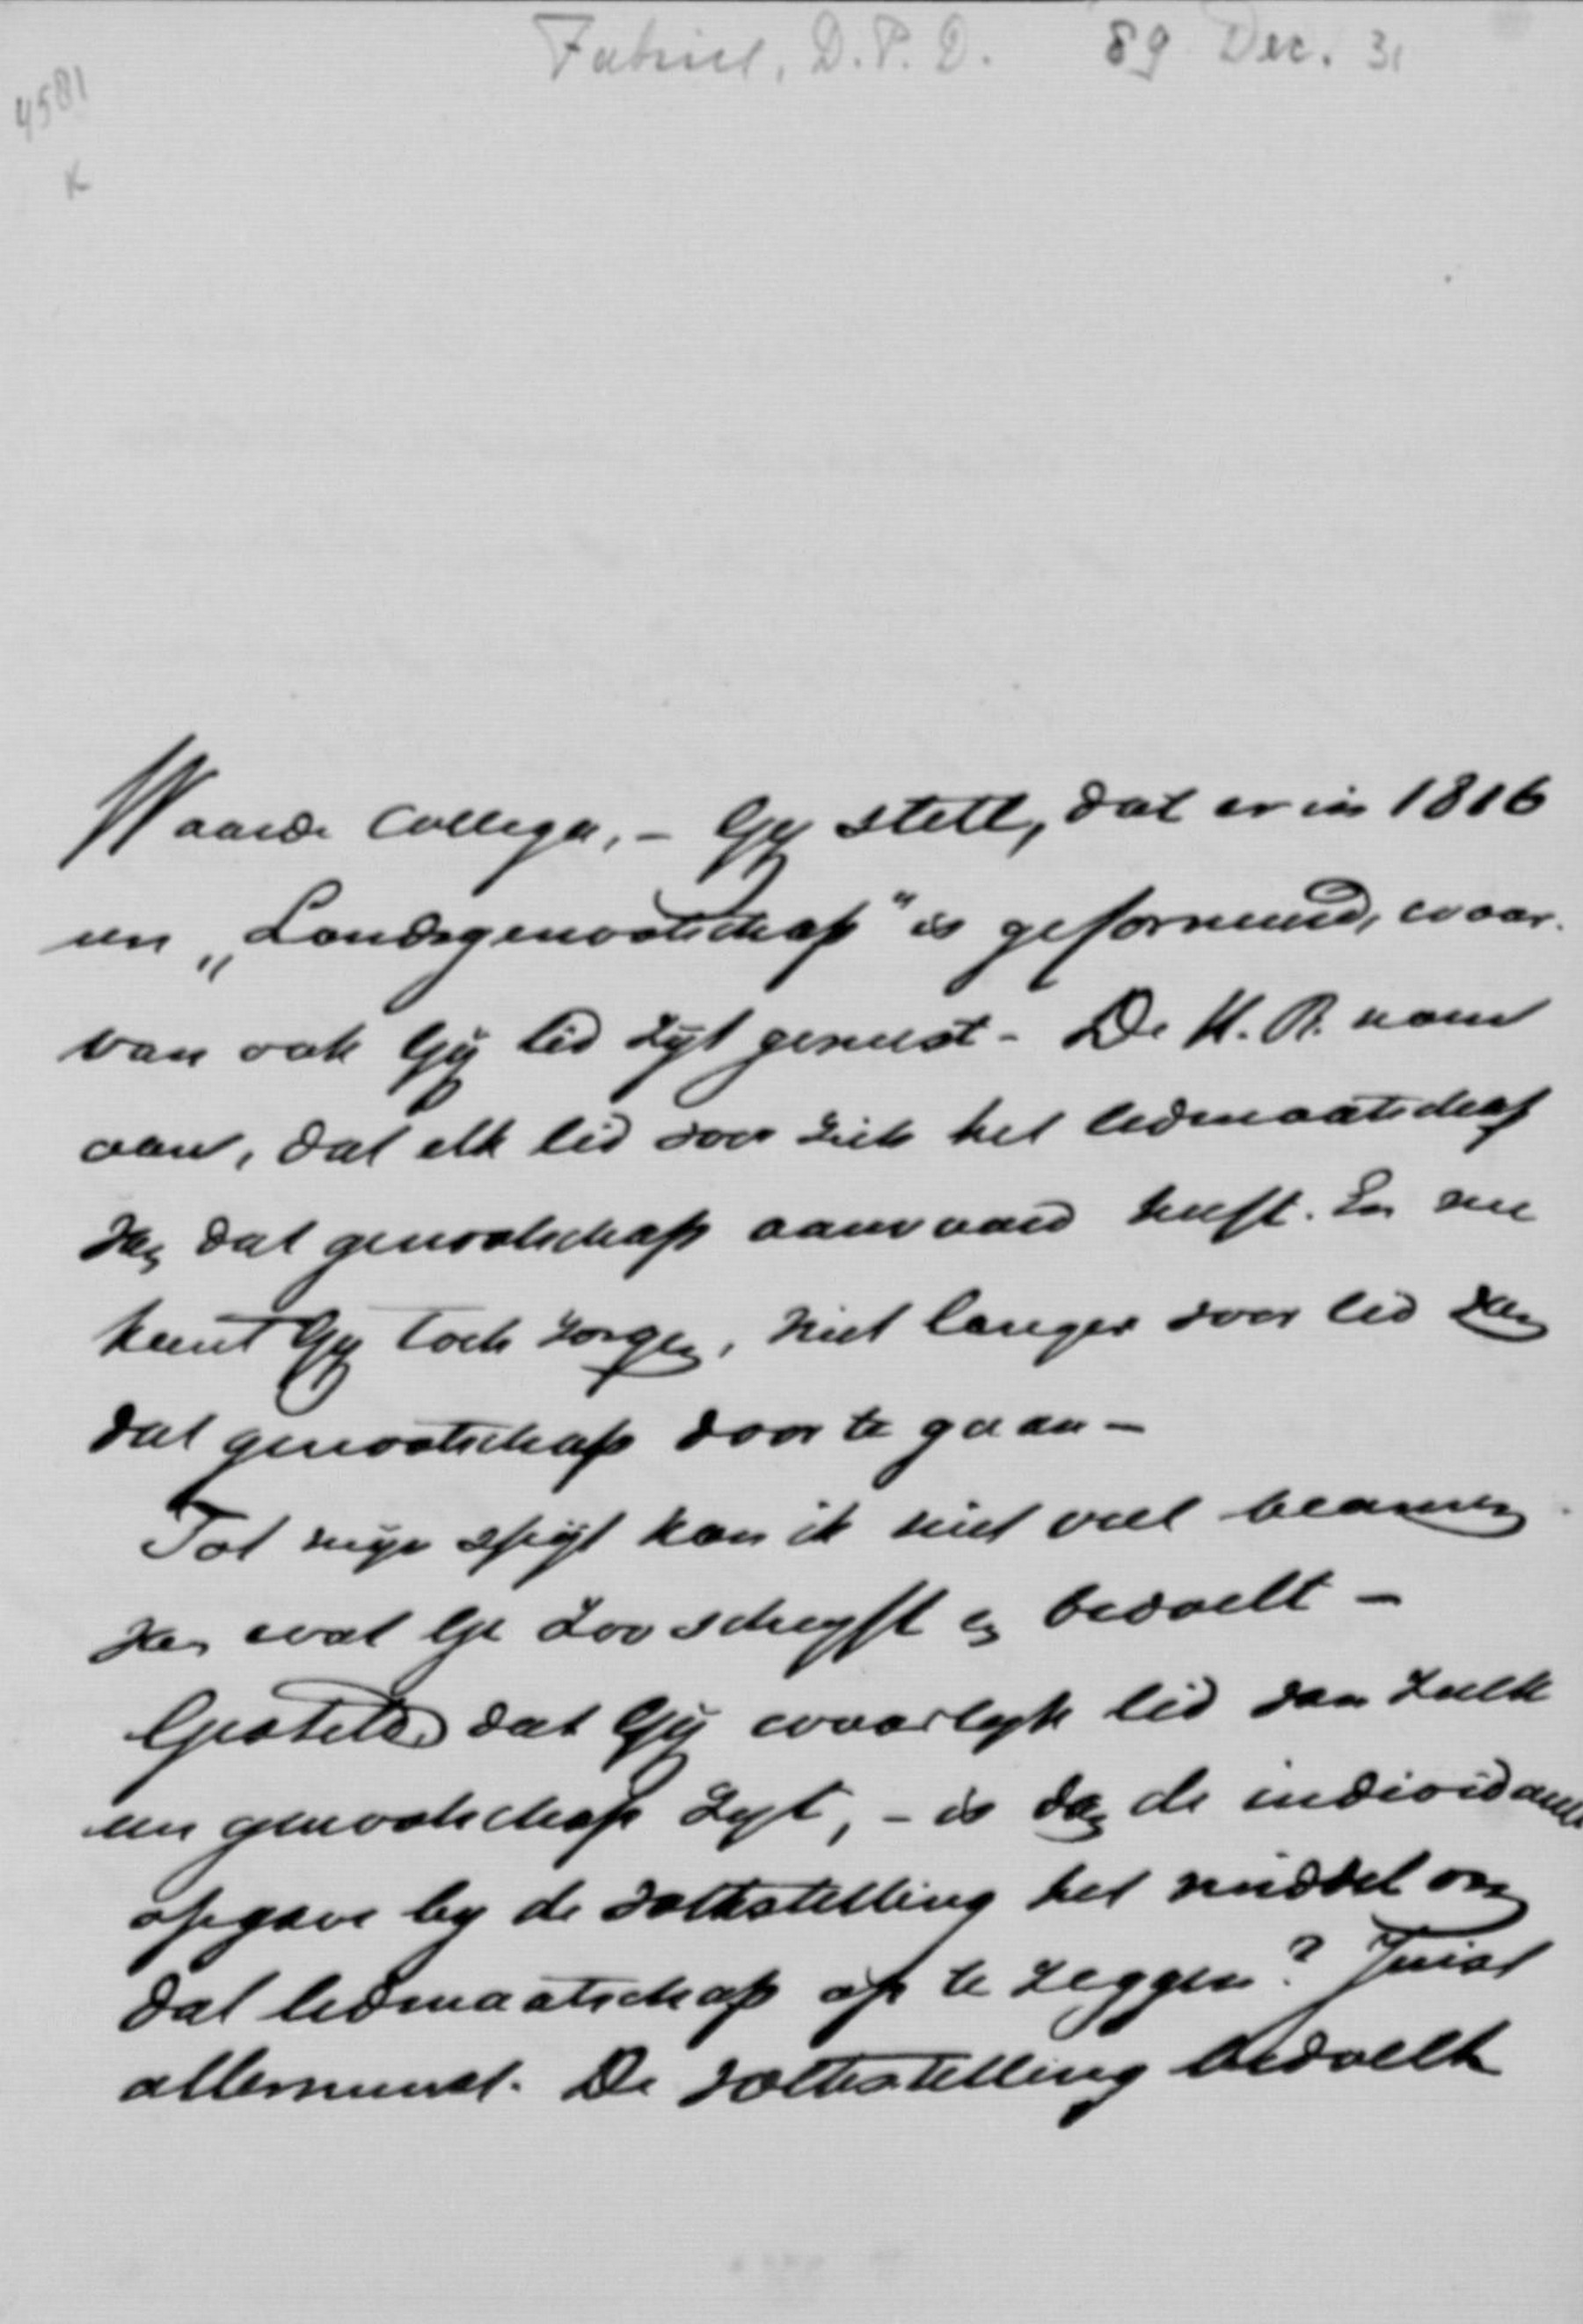 Fabius, D.P.D. 89 Dec. 31
4581
K
Waarde Collega, – Gy stelt, dat er in 1816
een „Landsgenootschap" is geformeerd, waar-
van ook Gÿ lid zÿt geweest – De H. R. nam
aan, dat elk lid voor zich het lidmaatschap
van dat genootschap aanvaard heeft. En nu
kunt Gy toch zorgen, niet langer voor lid van
dat genootschap door te gaan –
Tot mÿn spÿt kan ik niet veel beamen
van wat Ge zoo schryft en bedoelt –
Gesteld dat Gÿ waarlyk lid van zulk
een genootschap zyt, – is dan de individueele
opgave by de volkstelling het middel om
dat lidmaatschap op te zeggen? Juist
allerminst. De volkstelling bedoelt